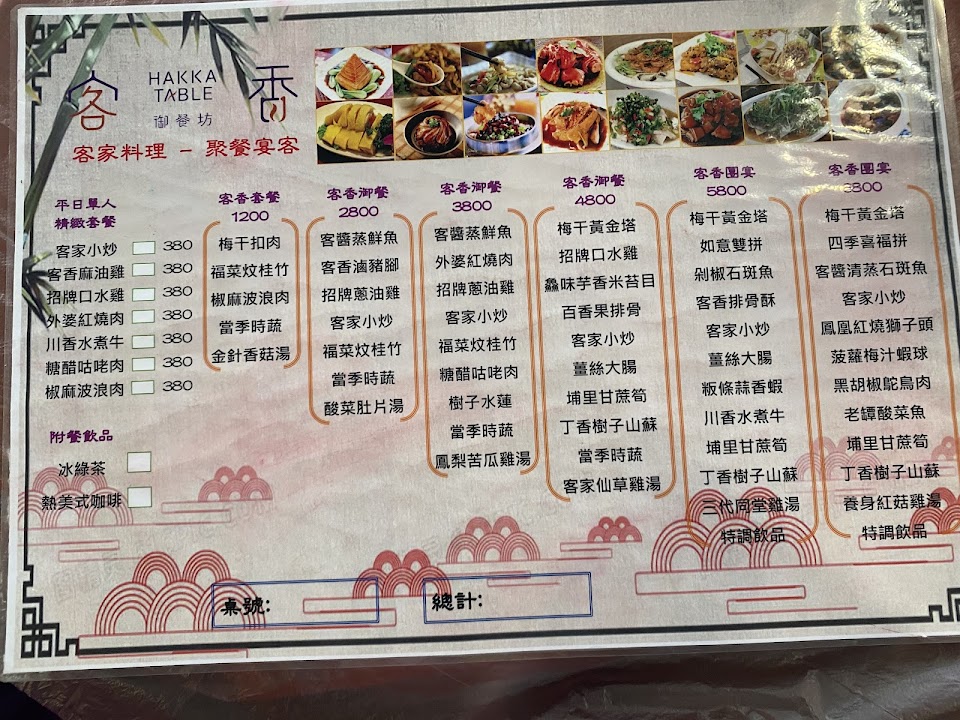 客 HAKKA TABLE 香
御餐坊
客家料理 - 聚餐宴客
平日單人
精緻套餐
客家小炒 380
客香麻油雞 380
招牌口水雞 380
外婆紅燒肉 380
川香水煮牛 380
糖醋咕咾肉 380
椒麻波浪肉 380
附餐飲品
冰綠茶
熱美式咖啡
客香套餐
1200
梅干扣肉
福菜炆桂竹
椒麻波浪肉
當季時蔬
金針香菇湯
客香御餐
2800
客醬蒸鮮魚
客香滷豬腳
招牌蔥油雞
客家小炒
福菜炆桂竹
當季時蔬
酸菜肚片湯
客香御餐
3800
客醬蒸鮮魚
外婆紅燒肉
招牌蔥油雞
客家小炒
福菜炆桂竹
糖醋咕咾肉
樹子水蓮
當季時蔬
鳳梨苦瓜雞湯
客香御餐
4800
梅干黃金塔
招牌口水雞
鱻味芋香米苔目
百香果排骨
客家小炒
薑絲大腸
埔里甘蔗筍
丁香樹子山蘇
當季時蔬
客家仙草雞湯
客香團宴
5800
梅干黃金塔
如意雙拼
剁椒石斑魚
客香排骨酥
客家小炒
薑絲大腸
粄條蒜香蝦
川香水煮牛
埔里甘蔗筍
丁香樹子山蘇
三代同堂雞湯
特調飲品
客香團宴
8800
梅干黃金塔
四季喜福拼
客醬清蒸石斑魚
客家小炒
鳳凰紅燒獅子頭
菠蘿梅汁蝦球
黑胡椒鴕鳥肉
老罈酸菜魚
埔里甘蔗筍
丁香樹子山蘇
養身紅菇雞湯
特調飲品
桌號:
總計: